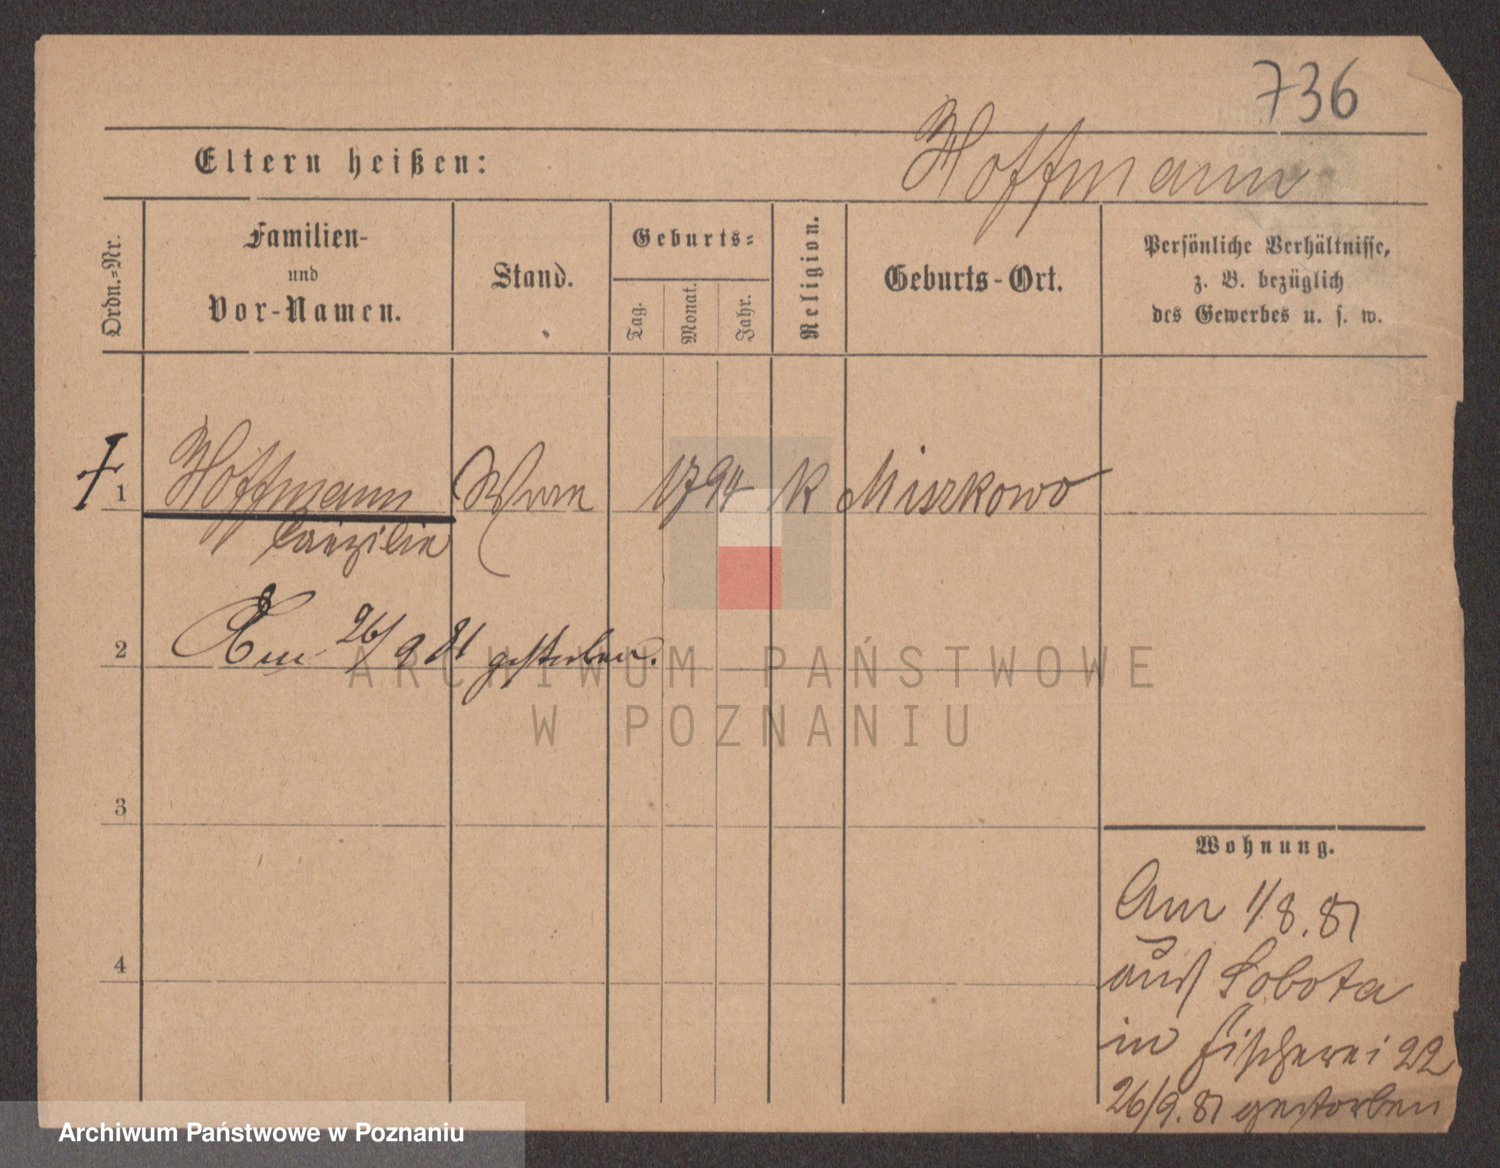 736
Eltern heißen:
Hoffmann
Ordn.-Nr.
Familien-
und
Vor-Namen.
Stand.
Geburts-
Tag.
Monat.
Jahr.
Religion.
Geburts-Ort.
Persönliche Verhältnisse,
z. B. bezüglich
des Gewerbes u. s. w.
1 Hoffmann 1794 K Miszkowo
Caezilie
2 Am 26/9 81 gestorben.
ARCHIWUM PAŃSTWOWE
W POZNANIU
3
Wohnung.
4
Am 1/8. 81
aus Sobota
in Fischerei 22
26/9. 81 gestorben
Archiwum Państwowe w Poznaniu